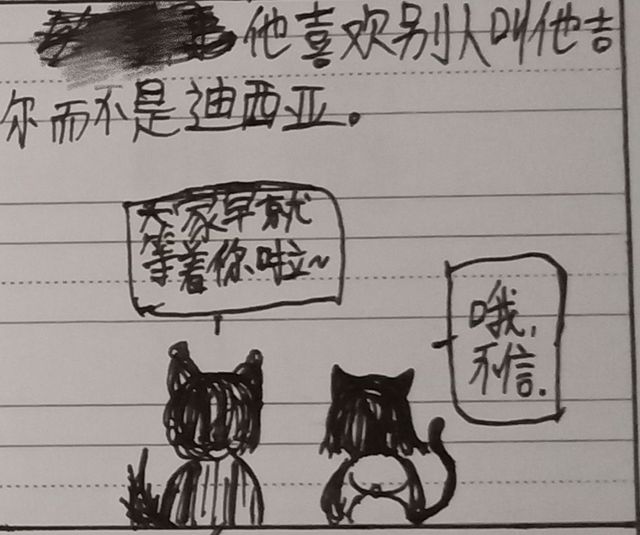 他喜欢别人叫他吉
尔而不是迪西亚。
大家早就
等着你啦~
哦,
不信.